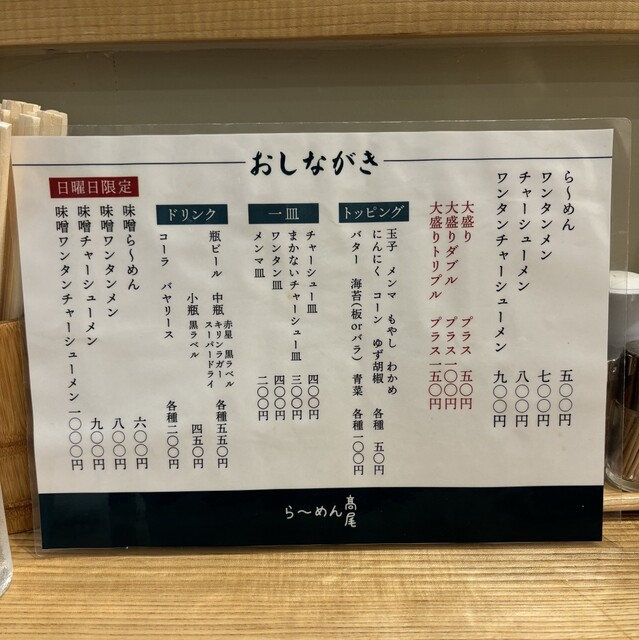 おしながき
ら〜めん 五〇〇円
ワンタンメン 七〇〇円
チャーシューメン 八〇〇円
ワンタンチャーシューメン 九〇〇円
大盛り プラス 五〇円
大盛りダブル プラス一〇〇円
大盛りトリプル プラス一五〇円
トッピング
玉子 メンマ もやし わかめ
にんにく コーン ゆず胡椒 各種 五〇円
バター 海苔(板orバラ) 青菜 各種 一〇〇円
一皿
チャーシュー皿 四〇〇円
まかないチャーシュー皿 三〇〇円
ワンタン皿 四〇〇円
メンマ皿 二〇〇円
ドリンク
瓶ビール 中瓶 赤星 黒ラベル
キリンラガー
スーパードライ 各種五五〇円
小瓶 黒ラベル 四五〇円
コーラ バヤリース 各種二〇〇円
日曜日限定
味噌ら〜めん 六〇〇円
味噌ワンタンメン 八〇〇円
味噌チャーシューメン 九〇〇円
味噌ワンタンチャーシューメン 一〇〇〇円
ら〜めん髙尾